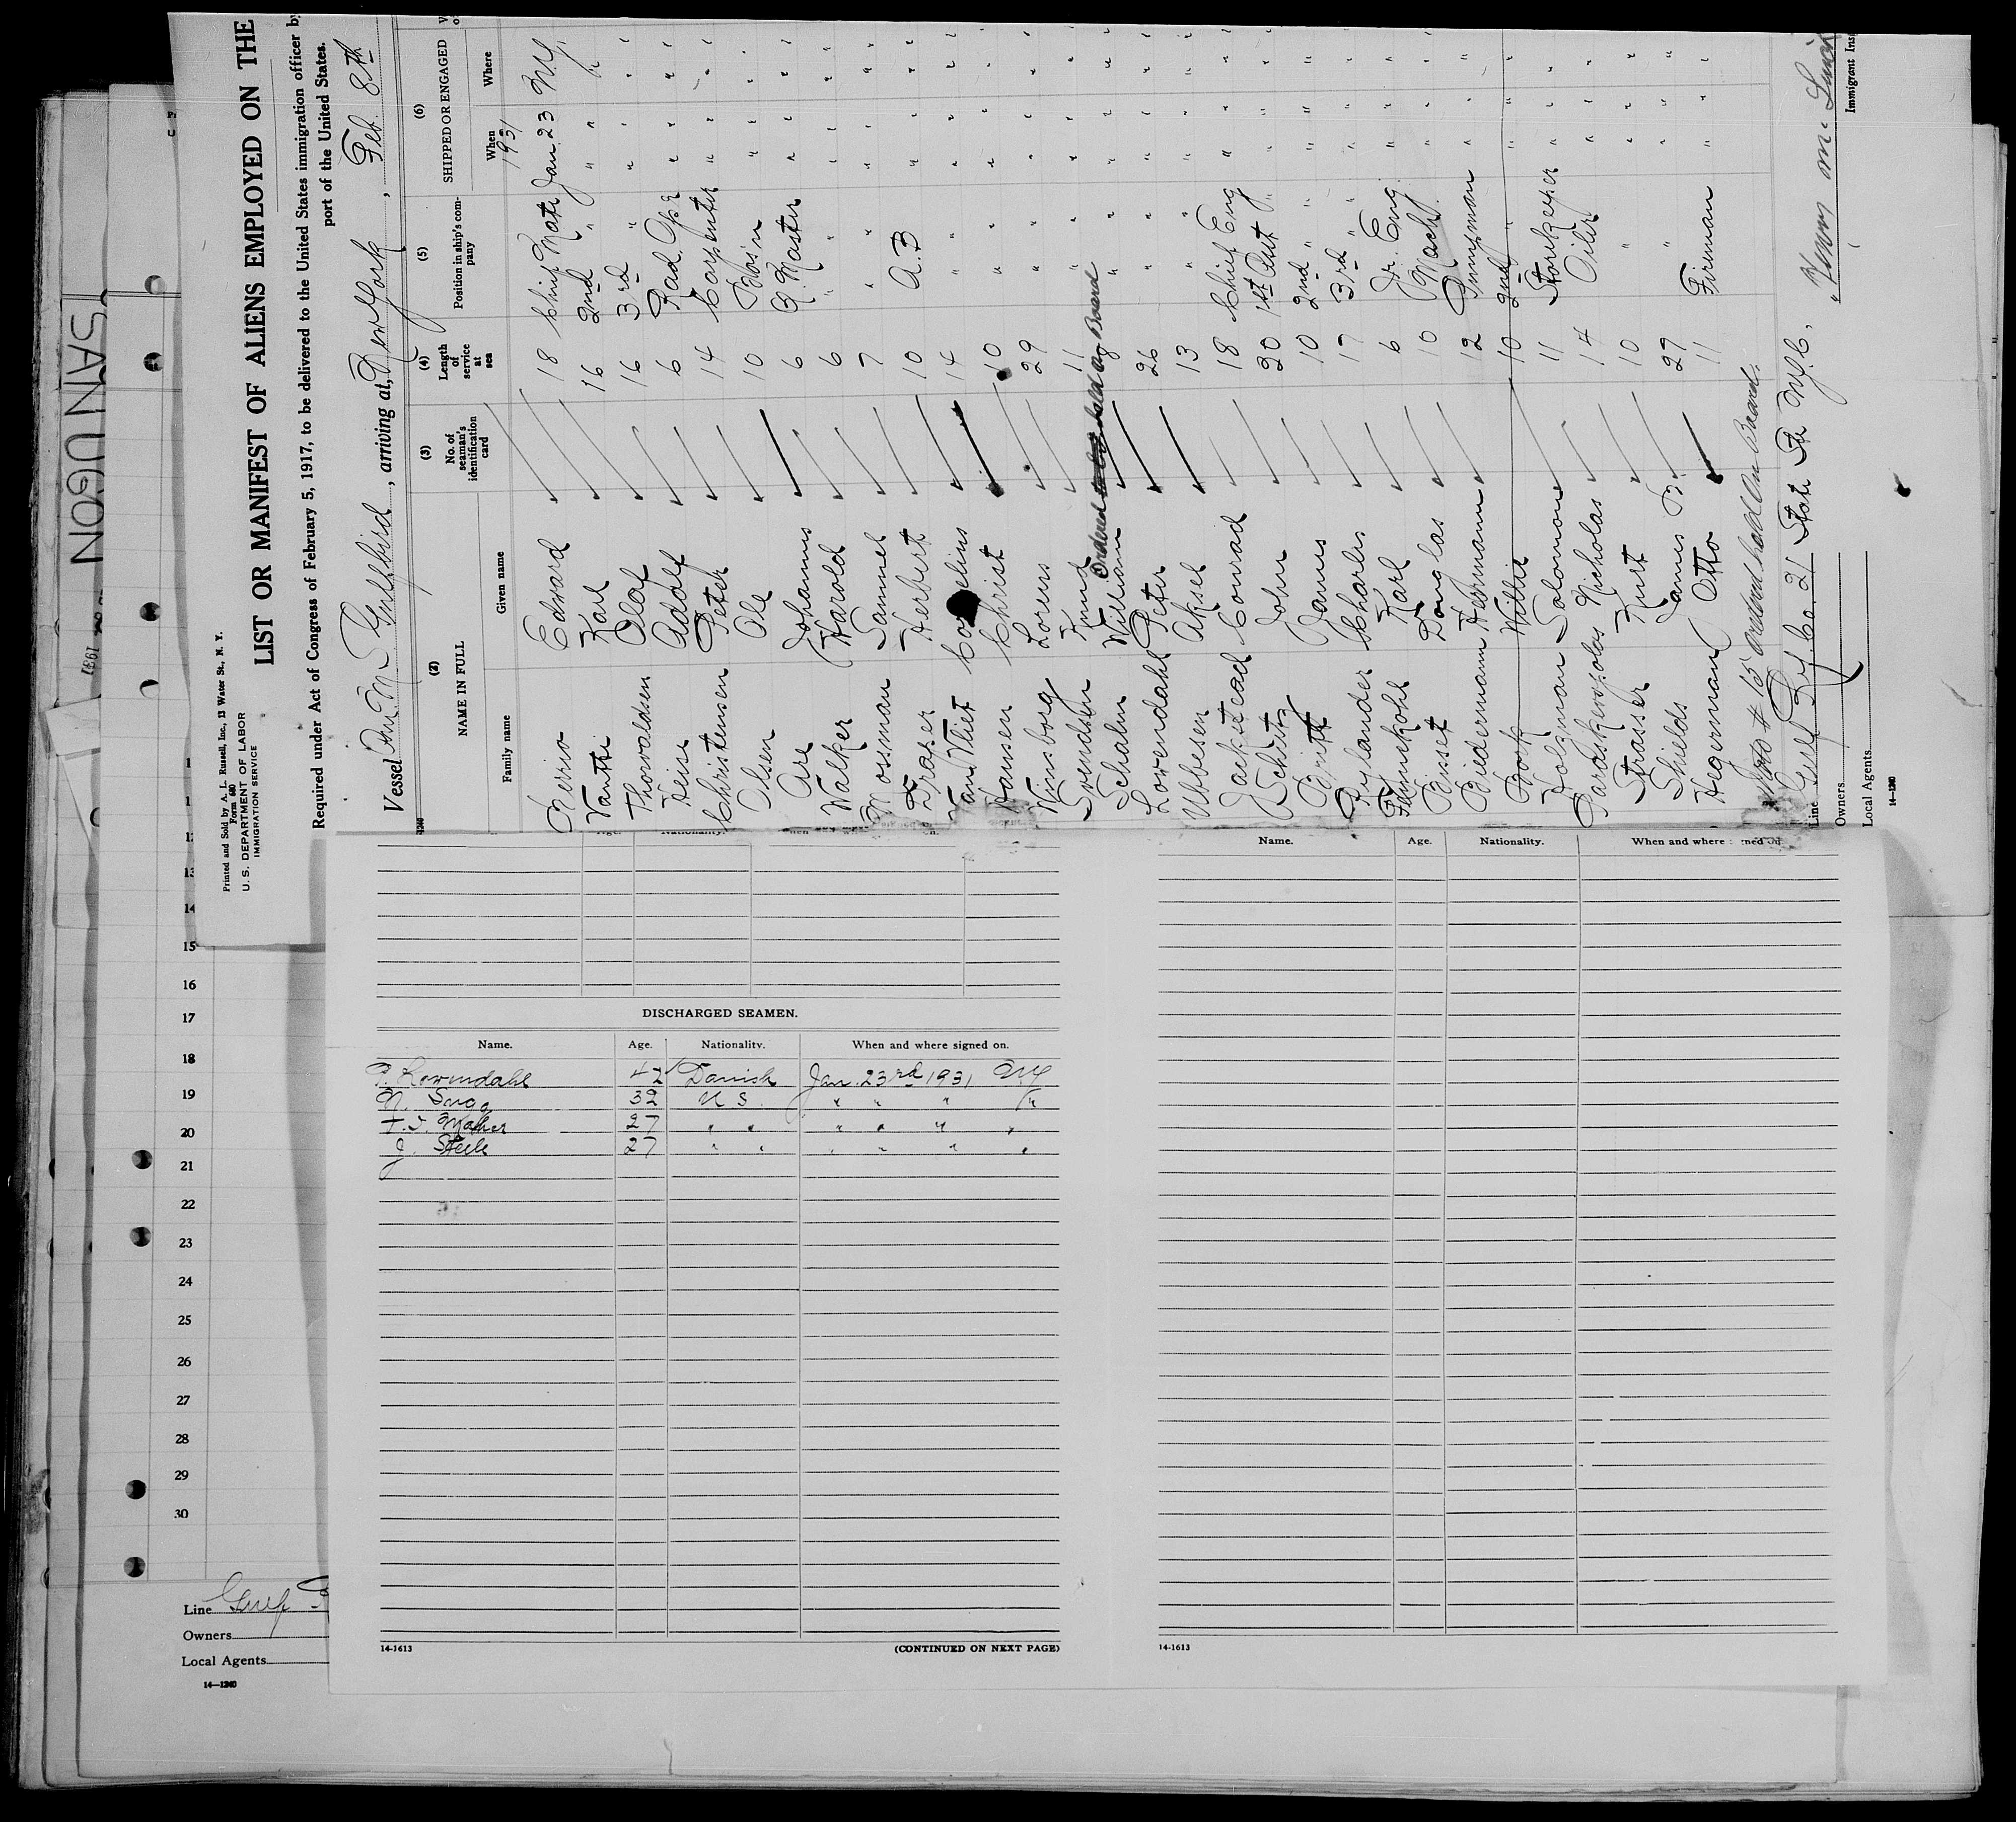 SAN UGON
1931
Printed and Sold by A. L. Russell, Inc., 13 Water St., N. Y.
Form 680
U. S. DEPARTMENT OF LABOR
IMMIGRATION SERVICE
LIST OR MANIFEST OF ALIENS EMPLOYED ON THE
Required under Act of Congress of February 5, 1917, to be delivered to the United States immigration officer by
port of the United States.
Vessel Am. M S Gulfbird, arriving at New York, Feb. 8th
(2) (3) (4) (5) (6)
NAME IN FULL No. of seaman's identification card Length of service at sea Position in ship's company SHIPPED OR ENGAGED
Family name Given name When Where
1931
Edward 18 Chief Mate Jan. 23 NY
Karl 16 2nd " " " "
Thorvaldsen Olaf 16 3rd " " " "
Heise Adolf 6 Rad. Opr " " "
Christensen Peter 14 Carpenter " " "
Olsen Ole 10 Bos'n " " "
Are Johannes 6 Q. Master " " "
Walker Harold 6 " " " " "
Mossman Samuel 7 " " " " "
Fraser Herbert 10 A.B " " "
Van Vliet Cornelius 14 " " " "
Hansen Christ 10 " " " "
Winsborg Lorens 29 " " " "
Svendsen Knud 11 " " " "
Ordered held on Board
Schalm William 8 " " " "
Lowendahl Peter 26 " " " "
Ubbesen Aksel 13 " " " "
Conrad 18 Chief Eng " " "
Schitz John 20 1st Asst " " " "
James 10 2nd " " " "
Rylander Charles 17 3rd " " " "
Karl 6 Jr. Eng. " " "
Bisset Douglas 10 Mach. " " "
Biedermann Hermann 12 Pumpman " " "
Book Willie 10 2nd " " " "
Holzman Solomon 11 Storekeeper " " "
Paraskevopolos Nicholas 14 Oiler " " "
Strasser Kurt 10 " " " "
Shields James B. 27 " " " "
Hegerman Otto 11 Fireman " " "
# 15 ordered held On Board.
Line Gulf Ref. Co. 21 State St N.Y.C.
Owners
Local Agents
14-1240
Immigrant Ins
Name. Age. Nationality. When and where signed on.
DISCHARGED SEAMEN.
Name. Age. Nationality. When and where signed on.
P. Lowendahl 42 Danish Jan. 23rd 1931 NY
32 U S. " " " "
Maher 27 " " " " " "
J. Steele 27 " " " " " "
14-1613 (CONTINUED ON NEXT PAGE)
14-1613
14
15
16
17
18
19
20
21
22
23
24
25
26
27
28
29
30
Line Gulf
Owners
Local Agents
14—1240